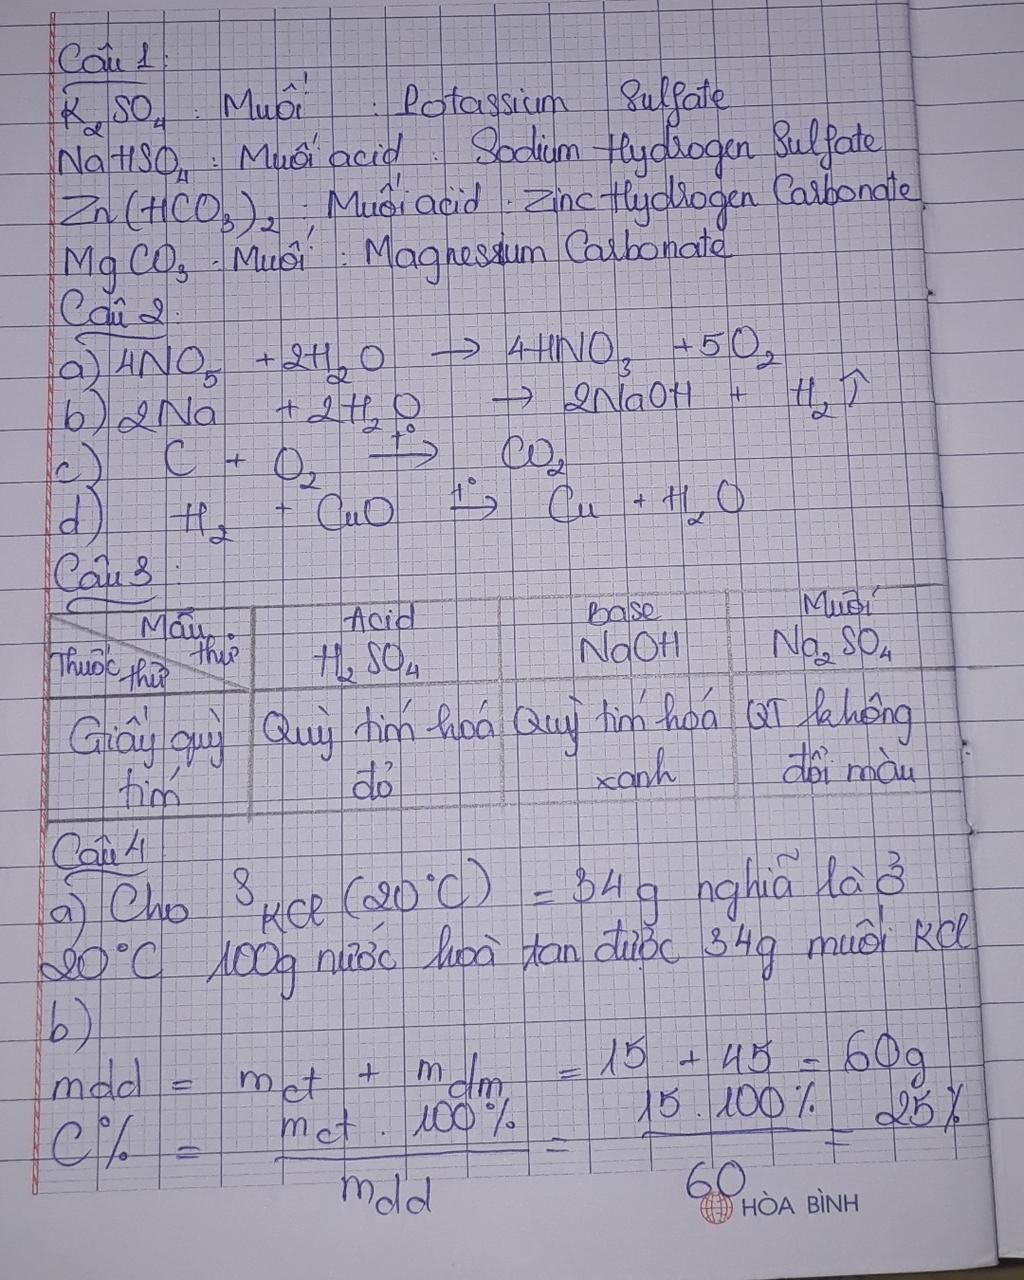 Câu 1:
K₂SO₄ : Muối : Potassium Sulfate
NaHSO₄ : Muối acid : Sodium Hydrogen Sulfate
Zn(HCO₃)₂ : Muối acid : Zinc Hydrogen Carbonate
MgCO₃ : Muối : Magnesium Carbonate
Câu 2:
a) 4NO₅ + 2H₂O → 4HNO₃ + 5O₂
b) 2Na + 2H₂O → 2NaOH + H₂↑
c) C + O₂ t°→ CO₂
d) H₂ + CuO t°→ Cu + H₂O
Câu 3:
Mẫu thử Acid Base Muối
Thuốc thử H₂SO₄ NaOH Na₂SO₄
Giấy quỳ Quỳ tím hoá Quỳ tím hoá QT không
tím đỏ xanh đổi màu
Câu 4
a) Cho S KCl (20°C) = 34g nghĩa là ở
20°C 100g nước hoà tan được 34g muối KCl
b)
mdd = mct + mdm = 15 + 45 = 60g
C% = mct . 100% / mdd = 15 . 100% / 60 = 25%
HÒA BÌNH